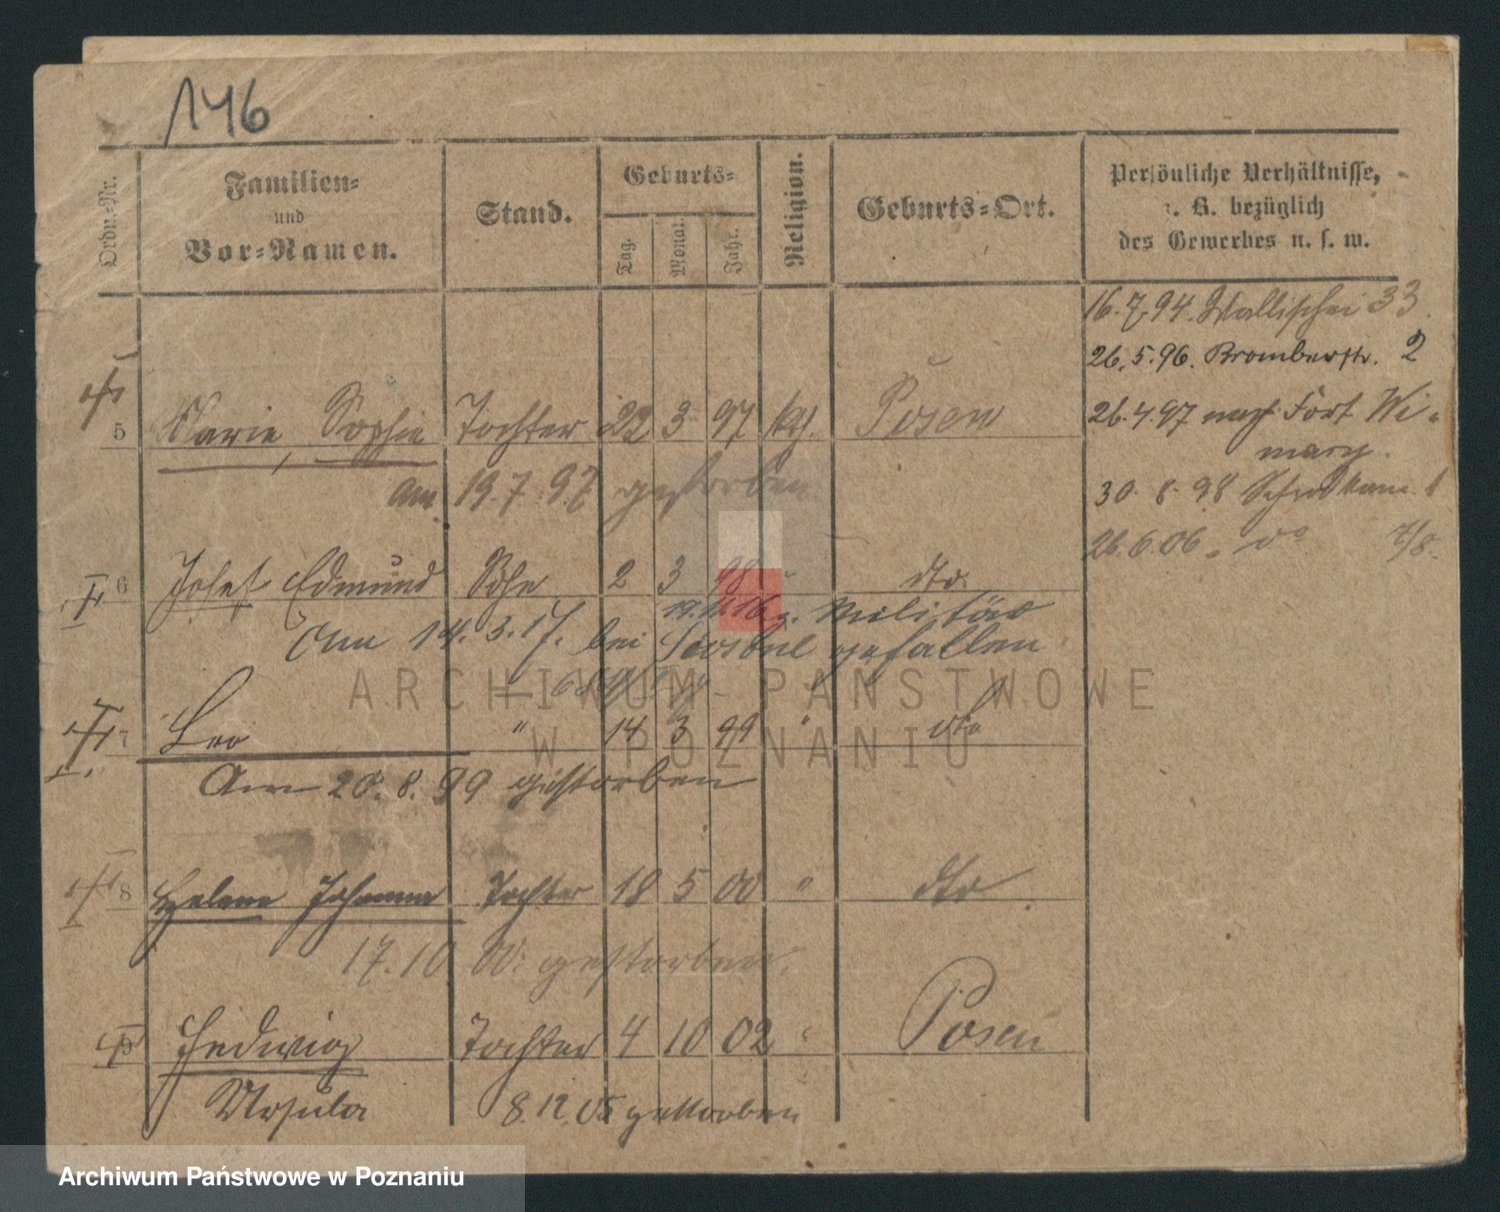 146
Ordn.-Nr.
Familien-
und
Vor-Namen.
Stand.
Geburts-
Tag.
Monat.
Jahr.
Religion.
Geburts-Ort.
Persönliche Verhältnisse,
z. B. bezüglich
des Gewerbes u. s. w.
16.7.94. Wallischei 33
26.5.96. Bromberstr. 2
5 Marie, Sophie Tochter 22 3 97 kth. Posen
26.4.97 nach Fort Wi-
mary.
Am 19.7.97 gestorben.
30.8.98
26.6.06. do 7/8.
6 Josef Edmund Sohn 2 3 98 " dto.
19.12.16 z. Militär
Am 14.3.17. bei gefallen
7 Leo " 14 3 99 " dto
Am 20.8.99 gestorben
8 Helene Johanna Tochter 18 5 00 " dto
17.10.00. gestorben.
9 Hedwig Tochter 4 10 02 " Posen
Ursula 8.12.05 gestorben
ARCHIWUM PAŃSTWOWE
W POZNANIU
Archiwum Państwowe w Poznaniu